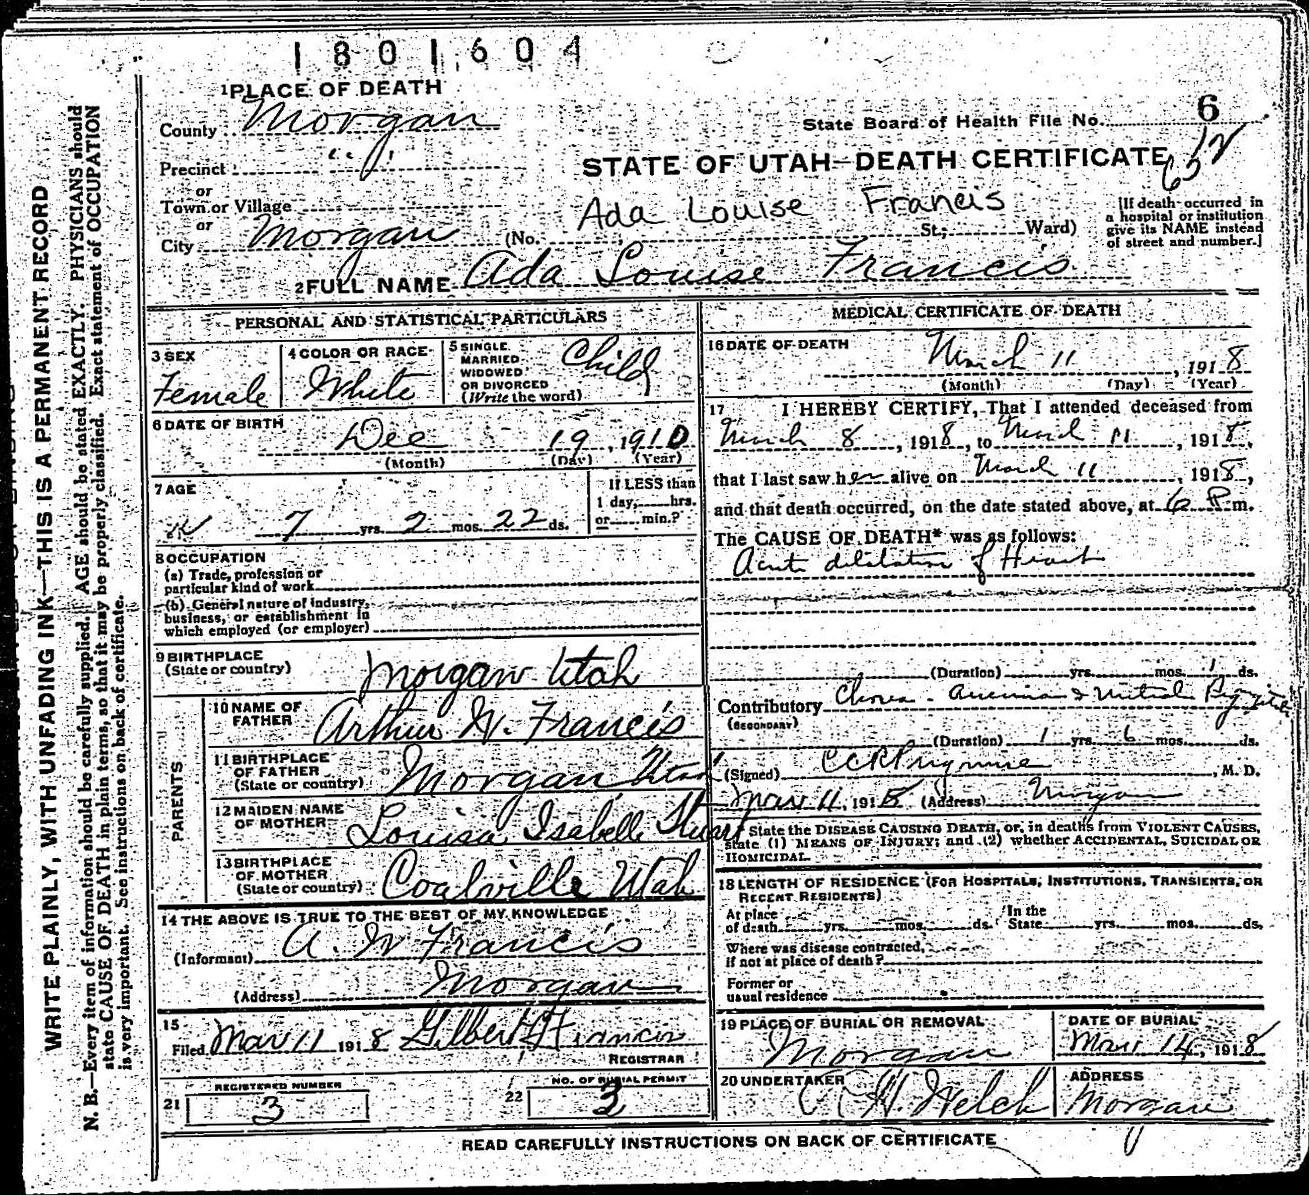 1801604
1 PLACE OF DEATH
County Morgan
State Board of Health File No. 6
Precinct " "
STATE OF UTAH—DEATH CERTIFICATE
652
or
Town or Village
or
City Morgan (No. Ada Louise Francis St.; Ward)
[If death occurred in
a hospital or institution
give its NAME instead
of street and number.]
2 FULL NAME Ada Louise Francis
PERSONAL AND STATISTICAL PARTICULARS
3 SEX
Female
4 COLOR OR RACE
White
5 SINGLE,
MARRIED,
WIDOWED
OR DIVORCED
(Write the word)
Child
6 DATE OF BIRTH
Dec 19, 1910
(Month) (Day) (Year)
7 AGE
7 yrs. 2 mos. 22 ds.
If LESS than
1 day, hrs.
or min.?
8 OCCUPATION
(a) Trade, profession or
particular kind of work
(b) General nature of industry,
business, or establishment in
which employed (or employer)
9 BIRTHPLACE
(State or country)
Morgan Utah
PARENTS
10 NAME OF
FATHER
Arthur W. Francis
11 BIRTHPLACE
OF FATHER
(State or country)
Morgan Utah
12 MAIDEN NAME
OF MOTHER
Louisa Isabelle Stuart
13 BIRTHPLACE
OF MOTHER
(State or country)
Coalville Utah
14 THE ABOVE IS TRUE TO THE BEST OF MY KNOWLEDGE
(Informant) A. W Francis
(Address) Morgan
15
Filed Mar 11 1918 Gilbert Francis
REGISTRAR
REGISTERED NUMBER
21 3
NO. OF BURIAL PERMIT
22 3
MEDICAL CERTIFICATE OF DEATH
16 DATE OF DEATH
March 11, 1918
(Month) (Day) (Year)
17 I HEREBY CERTIFY, That I attended deceased from
March 8, 1918, to March 11, 1918,
that I last saw her alive on March 11, 1918,
and that death occurred, on the date stated above, at 6 P m.
The CAUSE OF DEATH* was as follows:
Acute dilitation of Heart
(Duration) yrs. mos. 1 ds.
Contributory Chorea - Anemia & Mitral
(SECONDARY)
(Duration) 1 yrs. 6 mos. ds.
(Signed) , M. D.
Mar 11, 1918 (Address) Morgan
* State the DISEASE CAUSING DEATH, or, in deaths from VIOLENT CAUSES,
state (1) MEANS OF INJURY; and (2) whether ACCIDENTAL, SUICIDAL OR
HOMICIDAL.
18 LENGTH OF RESIDENCE (FOR HOSPITALS, INSTITUTIONS, TRANSIENTS, OR
RECENT RESIDENTS)
At place
of death yrs. mos. ds.
In the
State yrs. mos. ds.
Where was disease contracted,
if not at place of death?
Former or
usual residence
19 PLACE OF BURIAL OR REMOVAL
Morgan
DATE OF BURIAL
Mar 14, 1918
20 UNDERTAKER
H. Welch
ADDRESS
Morgan
READ CAREFULLY INSTRUCTIONS ON BACK OF CERTIFICATE
WRITE PLAINLY, WITH UNFADING INK—THIS IS A PERMANENT RECORD
N. B.—Every item of information should be carefully supplied. AGE should be stated EXACTLY. PHYSICIANS should
state CAUSE OF DEATH in plain terms, so that it may be properly classified. Exact statement of OCCUPATION
is very important. See instructions on back of certificate.